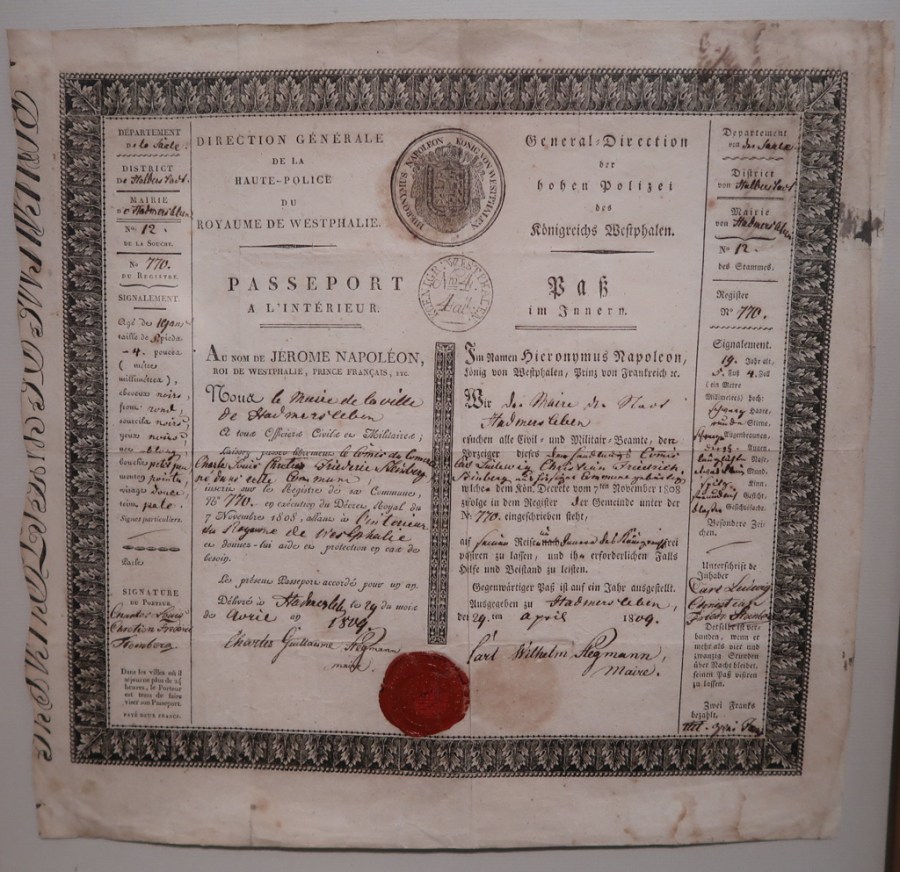 DÉPARTEMENT
de la Saale
DISTRICT
de Halberstadt
MAIRIE
de Hadmersleben
No. 12.
DE LA SOUCHE.
No 770.
DU REGISTRE.
SIGNALEMENT.
Agé de 19 ans
taille de 5 pieds
4. pouces
( mètres
millimètres ),
cheveux noirs,
front rond,
sourcils noirs,
yeux noirs,
nez oblong,
bouche petite,
menton pointu,
visage
teint pale.
Signes particuliers.
SIGNATURE
du Porteur.
Charles Louis
Chretien Frederic
Steinberg
Dans les villes où il
séjourne plus de 24
heures, le Porteur
est tenu de faire
viser son Passeport.
PAYÉ DEUX FRANCS.
DIRECTION GÉNÉRALE
DE LA
HAUTE-POLICE
DU
ROYAUME DE WESTPHALIE.
PASSEPORT
A L'INTÉRIEUR.
AU NOM DE JÉROME NAPOLÉON,
ROI DE WESTPHALIE, PRINCE FRANÇAIS, etc.
Nous le Maire de la ville
de Hadmersleben
A tous Officiers Civils et Militaires ;
Laissez passer librement le Comis de Comerce
Charles Louis Chretien Frederic Steinberg
né dans cette Commune,
inscrit sur les Registres de sa Commune,
No 770. en exécution du Décret Royal du
7 Novembre 1808, allant à l'interieur
du Royaume de Westphalie
et donnez-lui aide et protection en cas de
besoin.
Le présent Passeport accordé pour un an.
Délivré à Hadmersleb. le 29 du mois
de Avril an 1809.
Charles Guillaume Plegmann
maire.
HIERONYMUS NAPOLEON KÖNIG VON WESTPHALEN
General-Direction
der
hohen Polizei
des
Königreichs Westphalen.
Paß
im Innern.
Im Namen Hieronymus Napoleon,
König von Westphalen, Prinz von Frankreich ec.
Wir der Maire der Stadt
Hadmersleben
ersuchen alle Civil- und Militair-Beamte, den
Vorzeiger dieses den Handlungs Comis
Carl Ludewig Christian Friedrich
Steinberg aus hiesiger Commune gebürtig,
welcher dem Kön. Decrete vom 7ten November 1808
zufolge in dem Register der Gemeinde unter der
No 770. eingeschrieben steht,
auf seinen Reisen im Innern des Königreichs frei
passiren zu lassen, und ihm erforderlichen Falls
Hilfe und Beistand zu leisten.
Gegenwärtiger Paß ist auf ein Jahr ausgestellt.
Ausgegeben zu Hadmersleben,
den 29. ten April 1809.
Carl Wilhelm Plegmann,
Maire.
Departement
von der Saale
District
von Halberstadt
Mairie
von Hadmersleben
No 12.
des Stammes.
Register
No 770.
Signalement.
19. Jahr alt.
5. Fuß 4. Zoll
( ein Metre
Millimetres ) hoch:
schwarz Haare,
runde Stirne,
schwarze Augenbraunen,
Augen,
längliche Nase.
Mund.
spitz Kinn.
Gesicht.
blasse Gesichtsfarbe.
Besondere Zei-
chen.
Unterschrift des
Inhaber
Carl Ludewig
Christian
Derselbe ist ver-
bunden, wenn er
mehr als vier und
zwanzig Stunden
über Nacht bleibet,
seinen Paß visiren
zu lassen.
Zwei Franks
bezahlt.